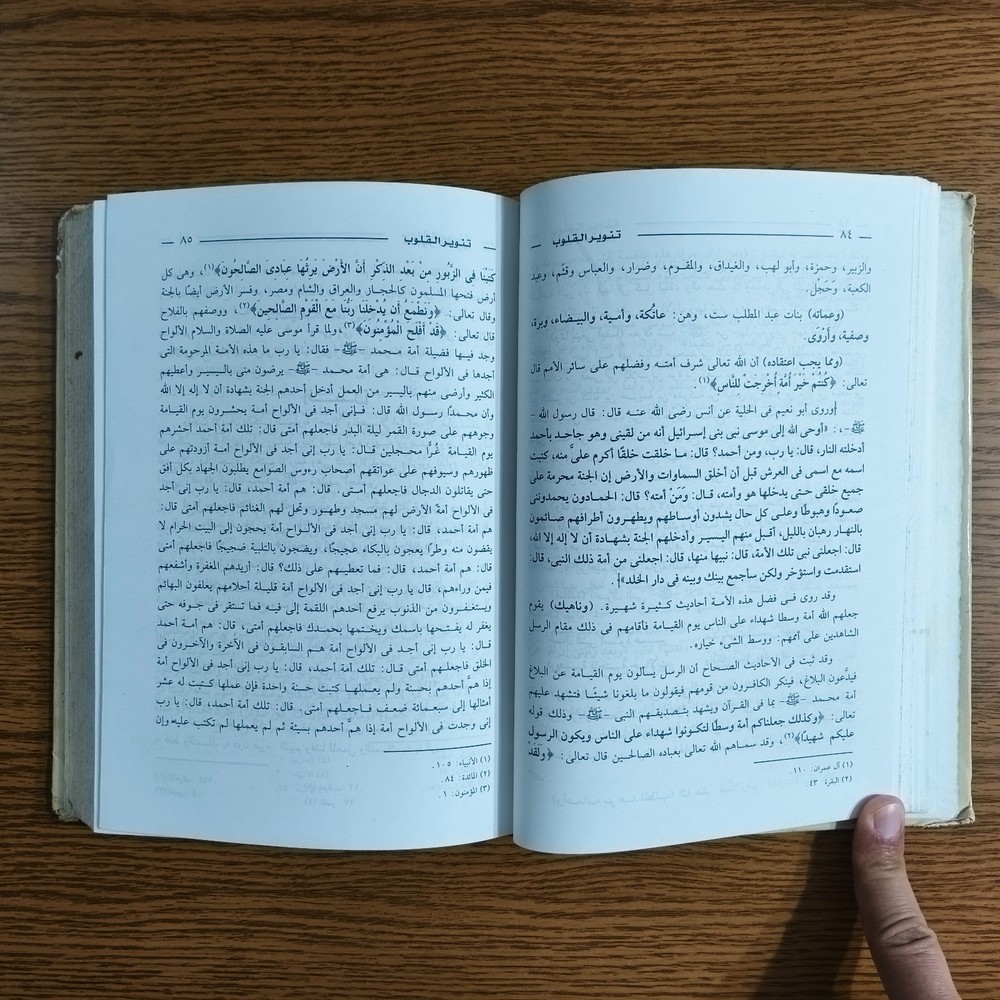 ٨٤ تنوير القلوب
والزبير، وحمزة، وأبو لهب، والغيداق، والمقـوم، وضرار، والعباس وقثم، وعبد
الكعبة، وَحَجْل.
(وعماته) بنات عبد المطلب ست، وهن: عاتكة، وأمية، والبيضاء، وبرة،
وصفية، وأرْوَى.
(ومما يجب اعتقاده) أن الله تعالى شرف أمتـه وفضلهم على سائر الأمم قال
تعالى: ﴿كُنتُمْ خَيْرَ أُمَّةٍ أُخْرِجَتْ لِلنَّاسِ﴾(١).
[وروى أبو نعيم فى الحلية عن أنس رضى الله عنـه قال: قال رسول الله -
ﷺ-: «أوحى الله إلى موسى نبى بنى إسرائيل أنه من لقينى وهو جاحـد بأحمد
أدخلته النار، قال: يا رب، ومن أحمد؟ قال: مـا خلقت خلقًا أكرم علىَّ منه، كتبت
اسمه مع اسمى فى العرش قبل أن أخلق السماوات والأرض إن الجنة محرمة على
جميع خلقى حـتى يدخلها هو وأمته، قـال: ومَنْ أمته؟ قال: الحمـادون يحمدوننى
صعـودًا وهبوطًا وعلـى كل حال يشدون أوسـاطهم ويطهـرون أطرافهم صـائمون
بالنهـار رهبان بالليل، أقبـل منهم اليسيـر وأدخلهم الجنة بشهـادة أن لا إله إلا الله،
قال: اجعلنى نبى تلك الأمة، قال: نبيها منها، قال: اجعلنى من أمة ذلك النبى، قال:
استقدمت واستؤخر ولكن سأجمع بينك وبينه فى دار الخلد»] .
وقد روى فـى فضل هذه الأمـة أحاديث كـثيـرة شهيـرة. (وناهيك) يقوم
جعلهم الله أمة وسطا شهداء على الناس يوم القيامة فأقامهم فى ذلك مقام الرسل
الشاهدين على أممهم: ووسط الشىء خياره.
وقد ثبت فى الأحاديث الصـحاح أن الرسل يسألون يوم القيـامة عن البلاغ
فيدَّعون البلاغ، فينكر الكافـرون من قومهم فيقولون ما بلغونا شيئـًا فتشهد عليهم
أمة محمـد -ﷺ- بما فى القـرآن ويشهد بتـصديقـهم النبى -ﷺ- وذلك قوله
تعالى: ﴿وكذلك جعلناكم أمة وسطًا لتكـونوا شهداء على الناس ويكون الرسول
عليكم شهيدًا﴾(٢)، وقد سمـاهم الله تعالى بعباده الصالحـين قال تعالى: ﴿وَلَقَدْ
(١) آل عمران: ١١٠.
(٢) البقرة: ٤٣
تنوير القلوب ٨٥
كَتَبْنَا فِى الزَّبُورِ مِنْ بَعْدِ الذِّكْرِ أَنَّ الأَرْضَ يَرِثُهَا عِبَادِىَ الصَّالِحُونَ﴾(١)، وهى كل
أرض فتحها المسلمون كالحجـاز والعراق والشام ومصر، وفسر الأرض أيضًا بالجنة
وقال تعالى: ﴿وَنَطْمَعُ أَن يُدْخِلَنَا رَبُّنَا مَعَ الْقَوْمِ الصَّالِحِينَ﴾(٢)، ووصفهم بالفلاح
قال تعالى: ﴿قَدْ أَفْلَحَ الْمُؤْمِنُونَ﴾(٣)،ولما قرأ موسى عليه الصلاة والسلام الألواح
وجد فيـها فضيلة أمة محـمد -ﷺ- فقال: يا رب ما هذه الأمـة المرحومة التى
أجدها فى الألواح قـال: هى أمة محمد -ﷺ- يرضون منى باليـسير وأعطيهم
الكثير وأرضى منهم باليسير من العمل أدخل أحدهم الجنة بشهادة أن لا إله إلا الله
وأن محمـدًا رسـول الله قال: فـإنى أجد فى الألواح أمـة يحشـرون يوم القيـامة
وجوههم على صورة القمر ليلة البدر فاجعلهم أمتى قال: تلك أمـة أحمد أحشرهم
يوم القيـامة غُـرًّا محـجلين قـال: يا رب إنى أجد فى الألواح أمـة أرديتهم على
ظهورهم وسيوفهم على عواتقهم أصحاب رءوس الصوامع يطلبون الجهاد بكل أفق
حتى يقاتلون الدجال فاجعلهم أمـتى. قال: هم أمة أحمد، قال: يا رب إنى أجد
فى الألواح أمة الأرض لهم مسجد وطهـور وتحل لهم الغنائم فاجعلهم أمتى قال:
هم أمة أحمد، قال: يا رب إنى أجد فى الألـواح أمة يحجون إلى البيت الحرام لا
يقضون منه وطرًا يعجون بالبكاء عجيجًا، ويضجون بالتلبية ضجيجًا فاجعلهم أمتى
قال: هم أمة أحمد، قال: فما تعطيـهم على ذلك؟ قال: أزيدهم المغفرة وأشفعهم
فيمن وراءهم، قال يا رب إنى أجد فى الألواح أمة قليـلة أحلامهم يعلفون البهائم
ويستغـفـرون من الذنوب يرفع أحدهم اللقمة إلى فيـه فما تستقر فى جـوفه حتى
يغفر له يفـتـحها باسمك ويختـمها بحمـدك فاجعلهم أمتى، قال: هم أمـة أحمد
قـال: يا رب إنى أجـد فى الألواح أمة هـم السابقـون فى الآخرة والآخـرون فى
الخلق فاجعلـهم أمتى قـال: تلك أمة أحمد، قال: يا رب إنى أجد فى الألواح أمة
إذا همَّ أحدهم بحسنة ولم يعملهـا كتبت حسنة واحدة فإن عملها كـتبت له عشر
أمثالها إلى سبعـمائة ضعـف فـاجعلـهم أمتى. قال: تلك أمة أحمد، قال: يا رب
إنى وجدت فى الألواح أمة إذا هـمَّ أحدهم بسيئة ثم لم يعملها لم تكتب عليه وإن
(١) الأنبياء: ١٠٥.
(٢) المائدة: ٨٤.
(٣) المؤمنون: ١.